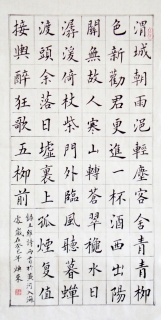 渭城朝雨浥輕塵客舍青青柳
色新勸君更進一杯酒西出陽
關無故人寒山轉蒼翠秋水日
潺湲倚杖柴門外臨風聽暮蟬
渡頭余落日墟裏上孤煙復值
接輿醉狂歌五柳前
錄王維詩兩首於黃河入海